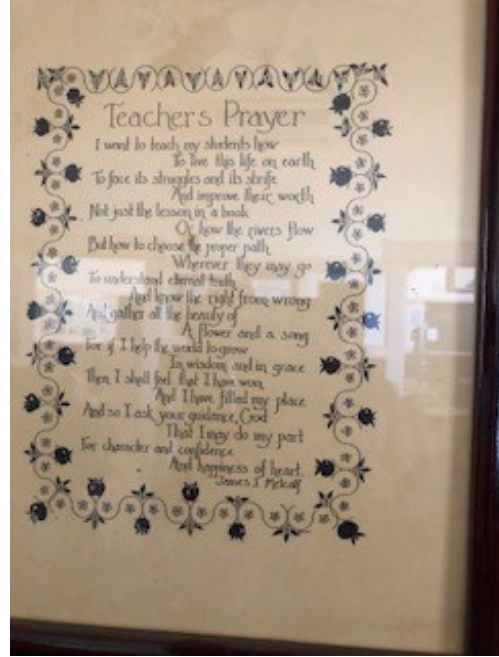 Teachers Prayer
I want to teach my students how
To live this life on earth
To face its struggles and its strife
And improve their worth
Not just the lesson in a book
Or how the rivers flow
But how to choose the proper path
Wherever they may go
To understand eternal truth
And know the right from wrong
And gather all the beauty of
A flower and a song
For if I help the world to grow
In wisdom and in grace
Then I shall feel that I have won
And I have filled my place
And so I ask your guidance, God
That I may do my part
For character and confidence
And happiness of heart.
James J. Metcalf